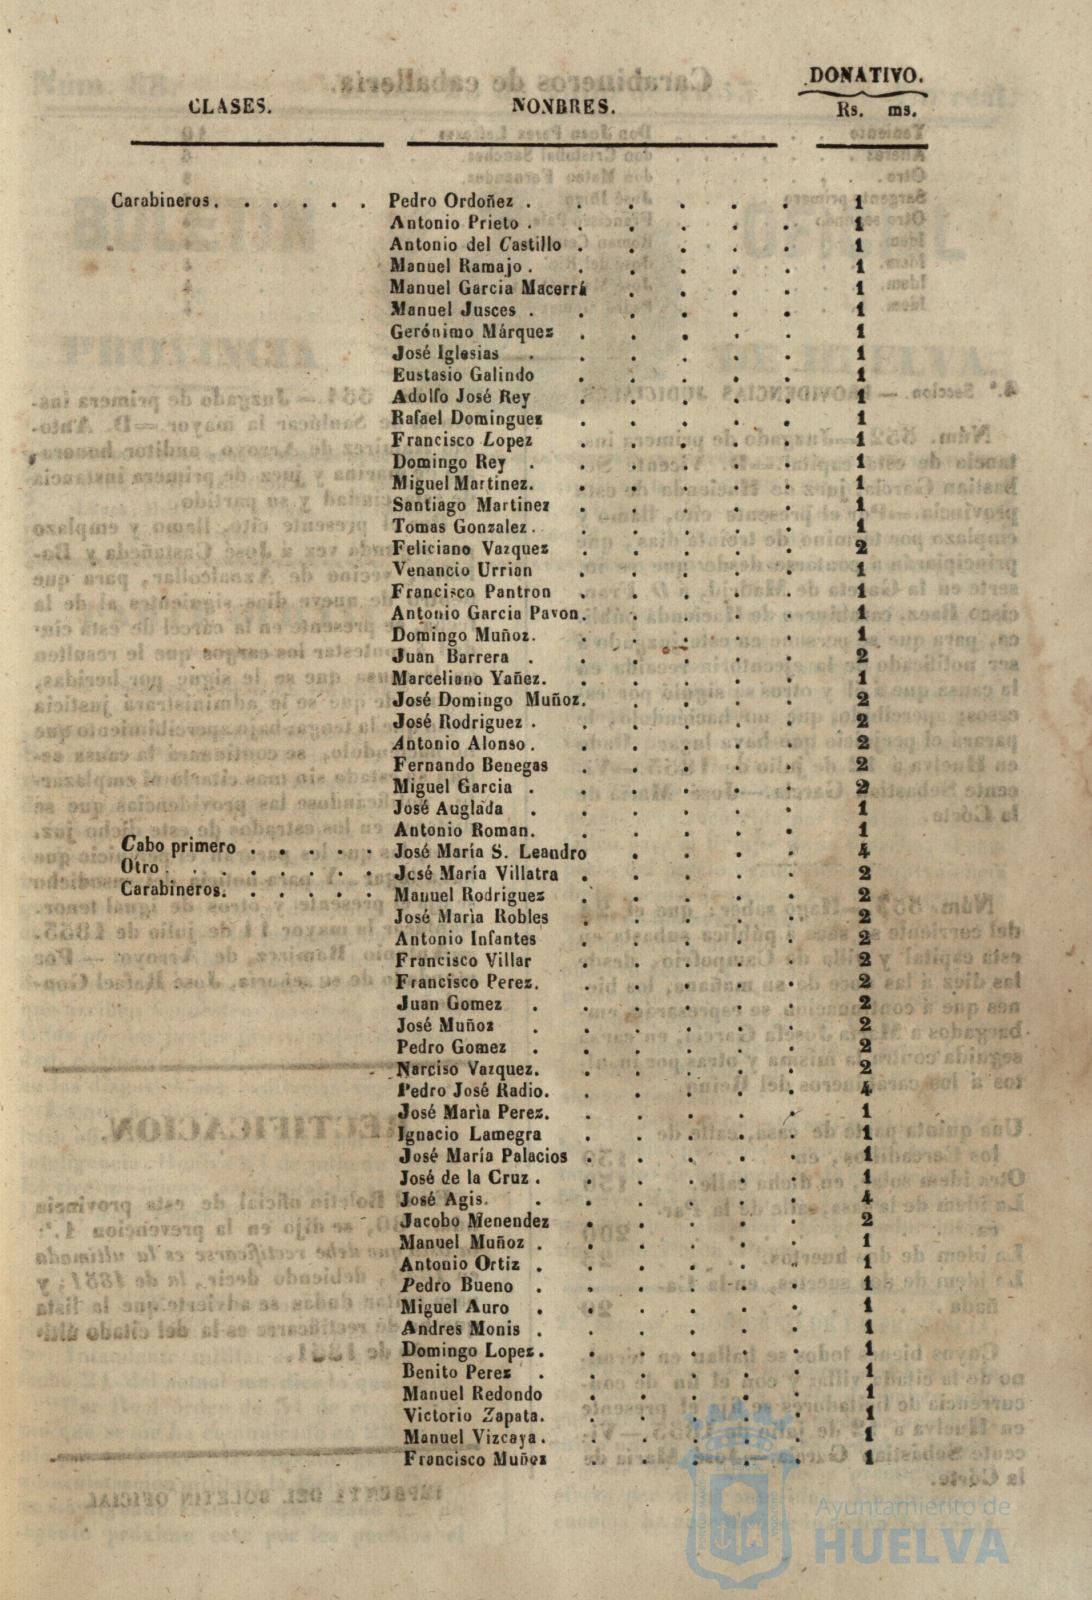 DONATIVO.
CLASES. NONBRES. Rs. ms.
Carabineros. . . . . . Pedro Ordoñez . . . . . . 1
Antonio Prieto . . . . . . 1
Antonio del Castillo . . . . . 1
Manuel Ramajo . . . . . . 1
Manuel Garcia Macerrá . . . . 1
Manuel Jusces . . . . . . 1
Gerónimo Márquez . . . . . 1
José Iglesias . . . . . . 1
Eustasio Galindo . . . . . 1
Adolfo José Rey . . . . . 1
Rafael Dominguez . . . . . 1
Francisco Lopez . . . . . 1
Domingo Rey . . . . . . 1
Miguel Martinez. . . . . . 1
Santiago Martinez . . . . . 1
Tomas Gonzalez. . . . . . 1
Feliciano Vazquez . . . . . 2
Venancio Urrian . . . . . 1
Francisco Pantron . . . . . 1
Antonio Garcia Pavon. . . . . 1
Domingo Muñoz. . . . . . 1
Juan Barrera . . . . . . 2
Marceliano Yañez. . . . . . 1
José Domingo Muñoz. . . . . 2
José Rodriguez . . . . . . 2
Antonio Alonso . . . . . . 2
Fernando Benegas . . . . . 2
Miguel Garcia . . . . . . 2
José Auglada . . . . . . 1
Antonio Roman. . . . . . 1
Cabo primero . . . . . José María S. Leandro . . . . 4
Otro . . . . . . . . José María Villatra . . . . . 2
Carabineros. . . . . . Manuel Rodriguez . . . . . 2
José Marìa Robles . . . . . 2
Antonio Infantes . . . . . 2
Francisco Villar . . . . . 2
Francisco Perez. . . . . . 2
Juan Gomez . . . . . . 2
José Muñoz . . . . . . 2
Pedro Gomez . . . . . . 2
Narciso Vazquez. . . . . . 2
Pedro José Radio. . . . . . 4
José Marìa Perez. . . . . . 1
Ignacio Lamegra . . . . . 1
José María Palacios . . . . . 1
José de la Cruz . . . . . . 1
José Agis. . . . . . . 4
Jacobo Menendez . . . . . 2
Manuel Muñoz . . . . . . 1
Antonio Ortiz . . . . . . 1
Pedro Bueno . . . . . . 1
Miguel Auro . . . . . . 1
Andres Monis . . . . . . 1
Domingo Lopez. . . . . . 1
Benito Perez . . . . . . 1
Manuel Redondo . . . . . 1
Victorio Zapata. . . . . . 1
Manuel Vizcaya . . . . . . 1
Francisco Muñoz . . . . . 1
Ayuntamiento de
HUELVA